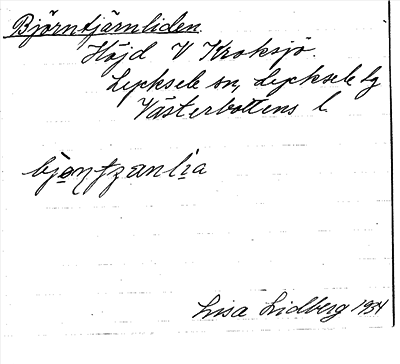 Björntjärnliden.
Höjd V Kroksjö.
Lycksele sn, Lycksele lg
Västerbottens l.
Lisa Lidberg 1934